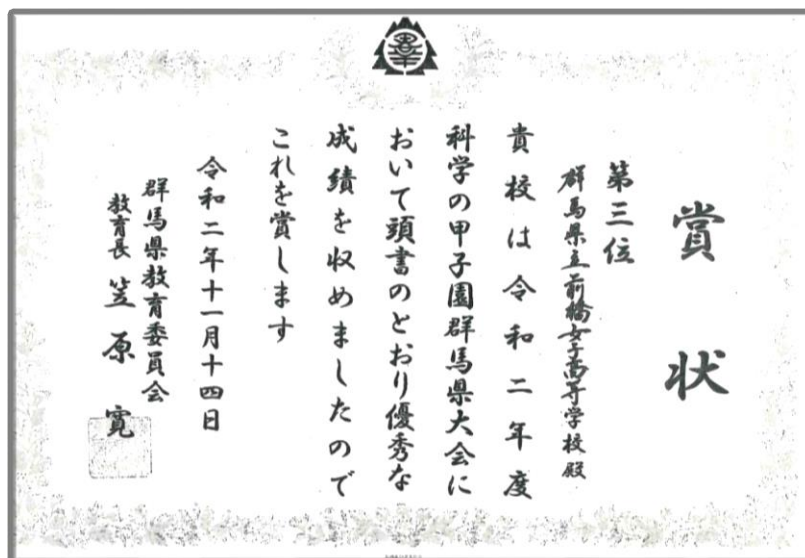 賞状
第三位
群馬県立前橋女子高等学校殿
貴校は令和二年度
科学の甲子園群馬県大会に
おいて頭書のとおり優秀な
成績を収めましたので
これを賞します
令和二年十一月十四日
群馬県教育委員会
教育長 笠原寛